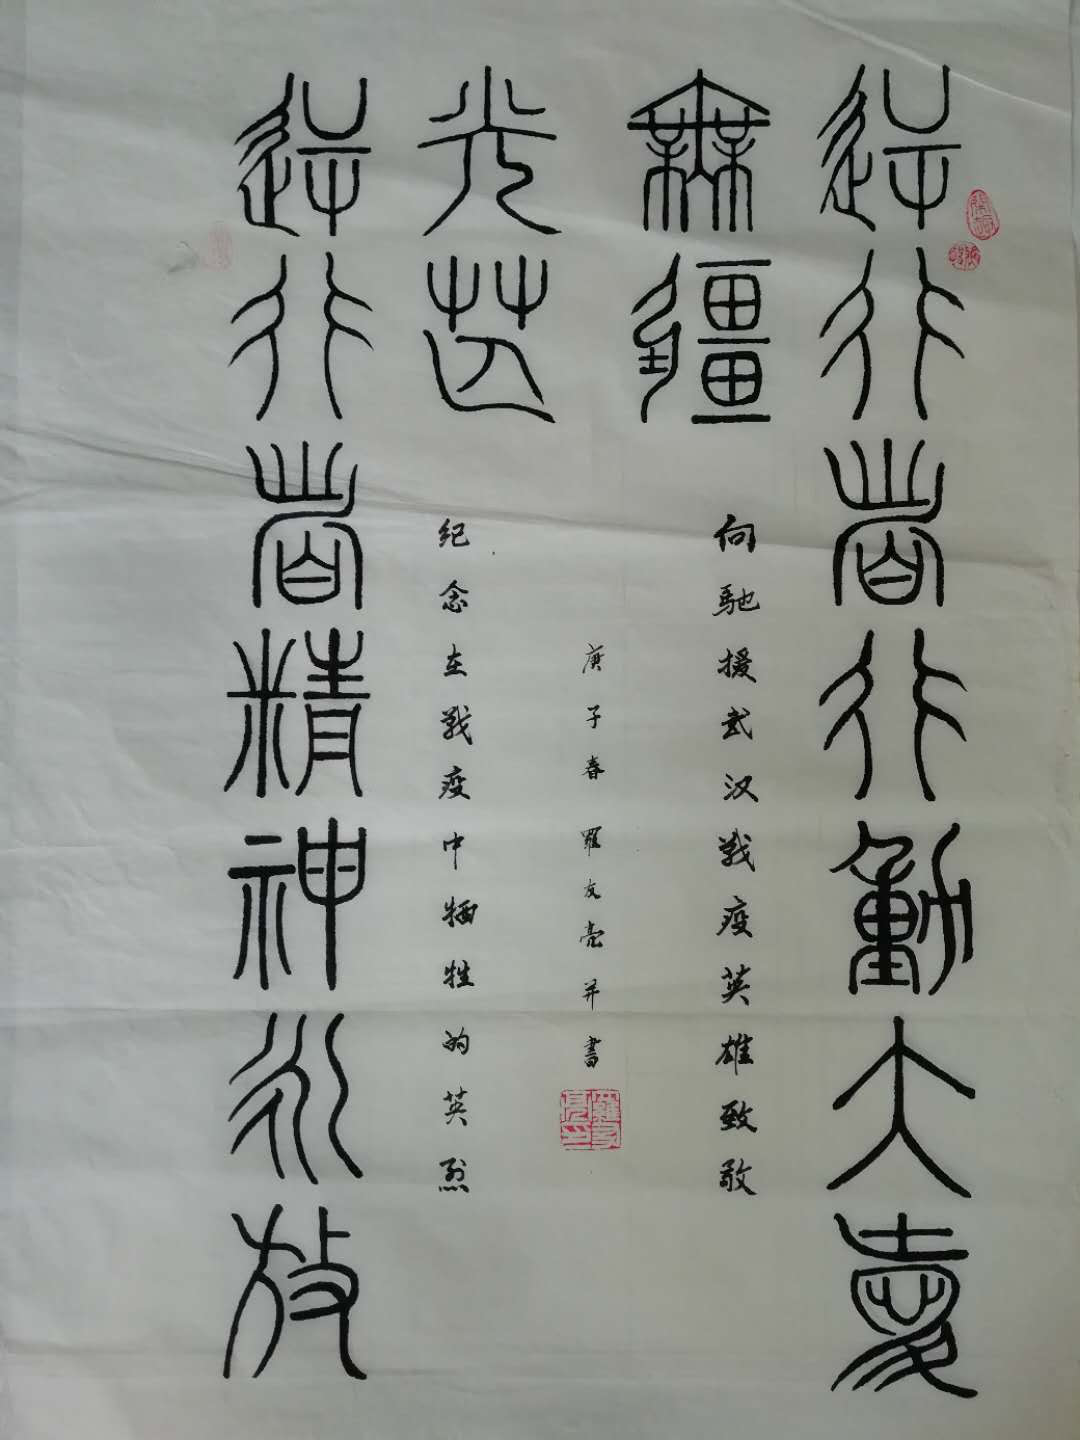 逆行者行動大愛
無疆
向馳援武汉战疫英雄致敬
逆行者精神永放
光芒
纪念在战疫中牺牲的英烈
庚子春 羅友亮并書
羅友亮印